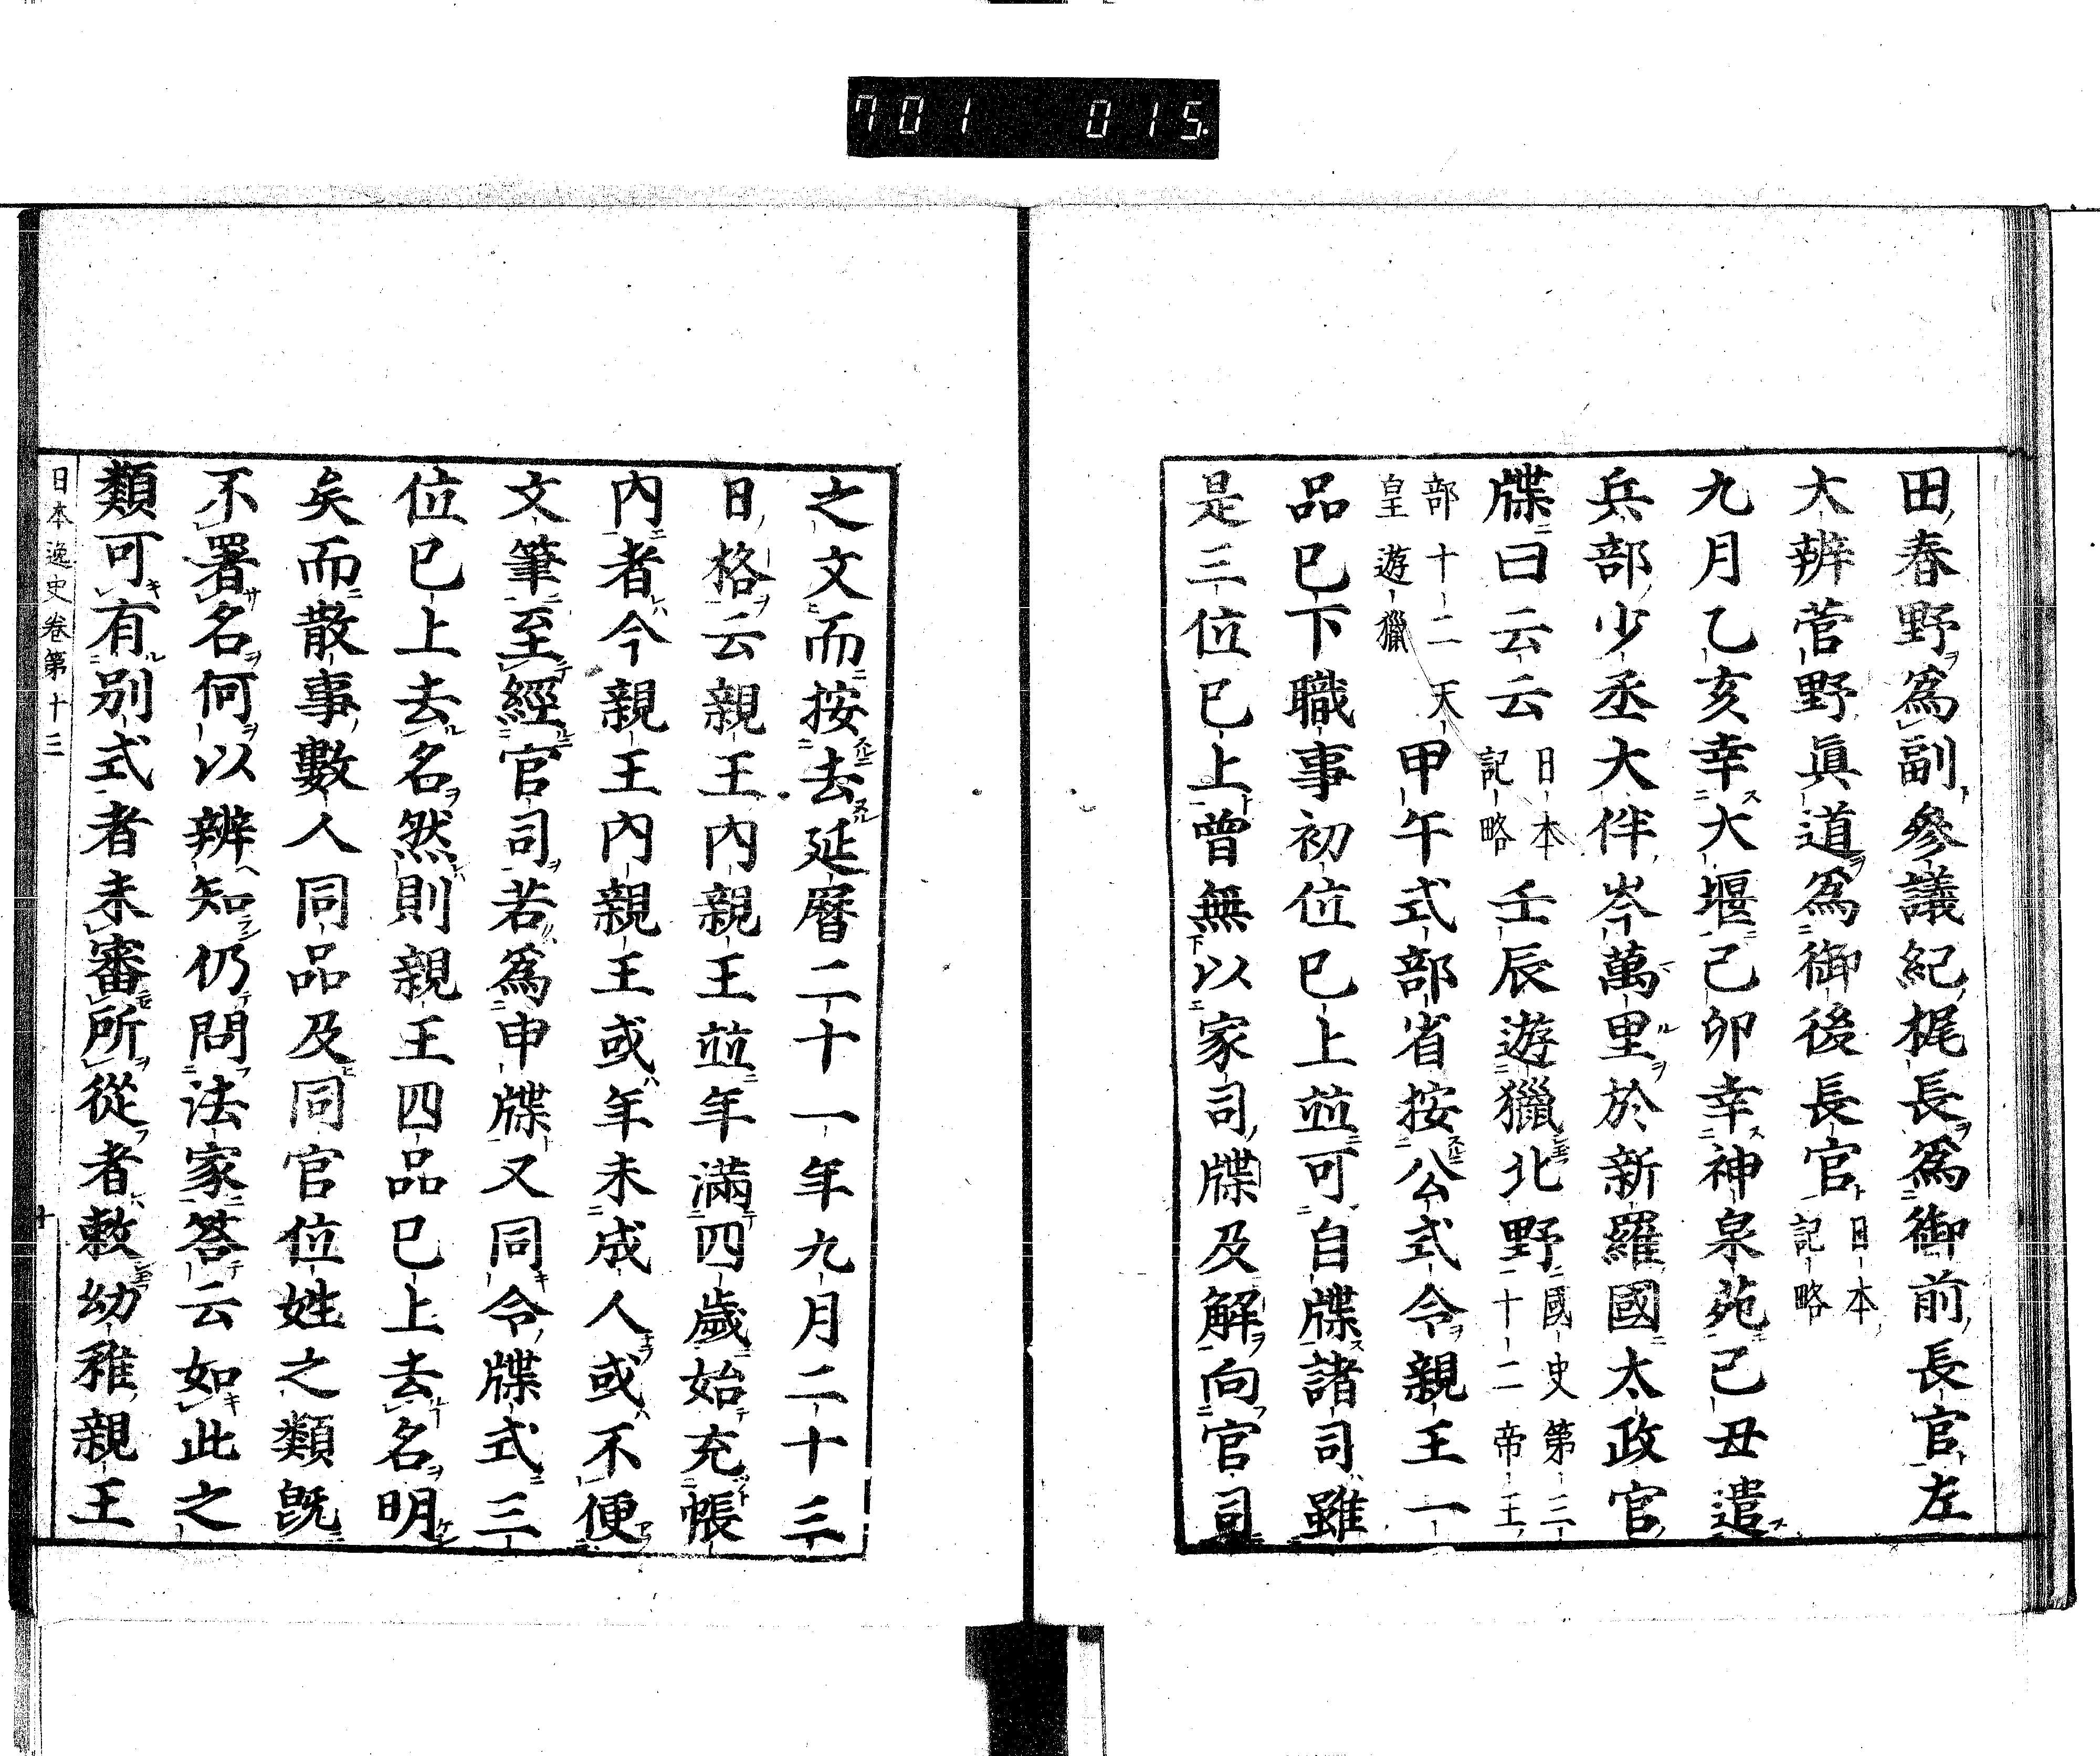 701 015.
田春野爲副參議紀梶長爲御前長官左
大辨菅野眞道爲御後長官日本記略
九月乙亥幸大堰己卯幸神泉苑己丑遣
兵部少丞大伴岑萬里於新羅國太政官
牒曰云云日本記略壬辰遊獵北野國史第三十二帝王
部十二天皇遊獵甲午式部省按公式令親王一
品已下職事初位已上並可自牒諸司雖
是三位已上曾無以家司牒及解向官司
之文而按去延曆二十一年九月二十三
日格云親王內親王並年滿四歲始充帳
內者今親王內親王或年未成人或不便
文筆至經官司若爲申牒又同令牒式三
位已上去名然則親王四品已上去名明
矣而散事數人同品及同官位姓之類既
不署名何以辨知仍問法家答云如此之
類可有別式者未審所從者敕幼稚親王
日本逸史卷第十三 十